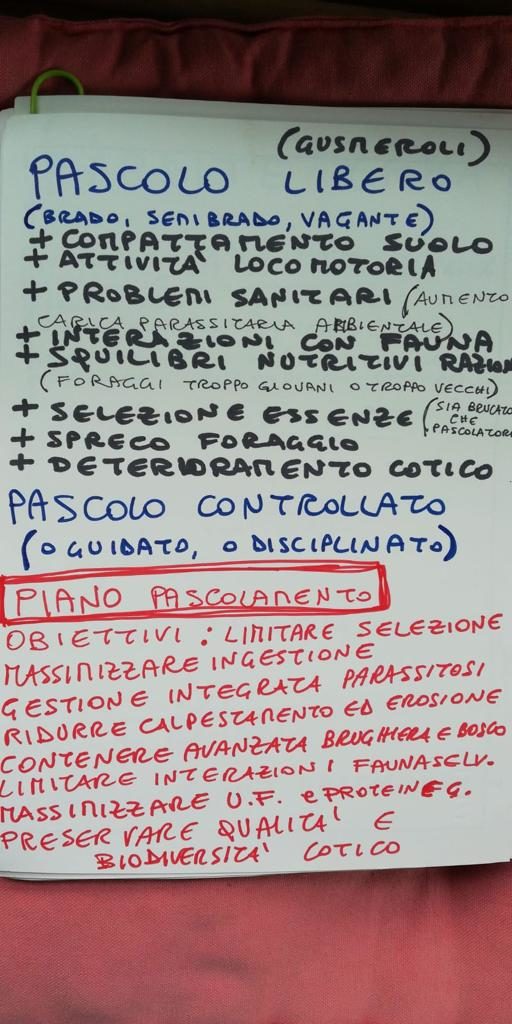 (GUSMEROLI)
PASCOLO LIBERO
(BRADO, SEMIBRADO, VAGANTE)
+ COMPATTAMENTO SUOLO
+ ATTIVITA' LOCOMOTORIA
+ PROBLEMI SANITARI (AUMENTO
CARICA PARASSITARIA AMBIENTALE)
+ INTERAZIONI CON FAUNA
+ SQUILIBRI NUTRITIVI RAZION
(FORAGGI TROPPO GIOVANI O TROPPO VECCHI)
+ SELEZIONE ESSENZE (SIA BRUCATO
CHE
PASCOLATORI
+ SPRECO FORAGGIO
+ DETERIORAMENTO COTICO
PASCOLO CONTROLLATO
(O GUIDATO, O DISCIPLINATO)
PIANO PASCOLAMENTO
OBIETTIVI : LIMITARE SELEZIONE
MASSIMIZZARE INGESTIONE
GESTIONE INTEGRATA PARASSITOSI
RIDURRE CALPESTAMENTO ED EROSIONE
CONTENERE AVANZATA BRUGHIERA E BOSCO
LIMITARE INTERAZIONI FAUNASELV.
MASSIMIZZARE U.F. e PROTEINE G.
PRESERVARE QUALITA' E
BIODIVERSITA' COTICO